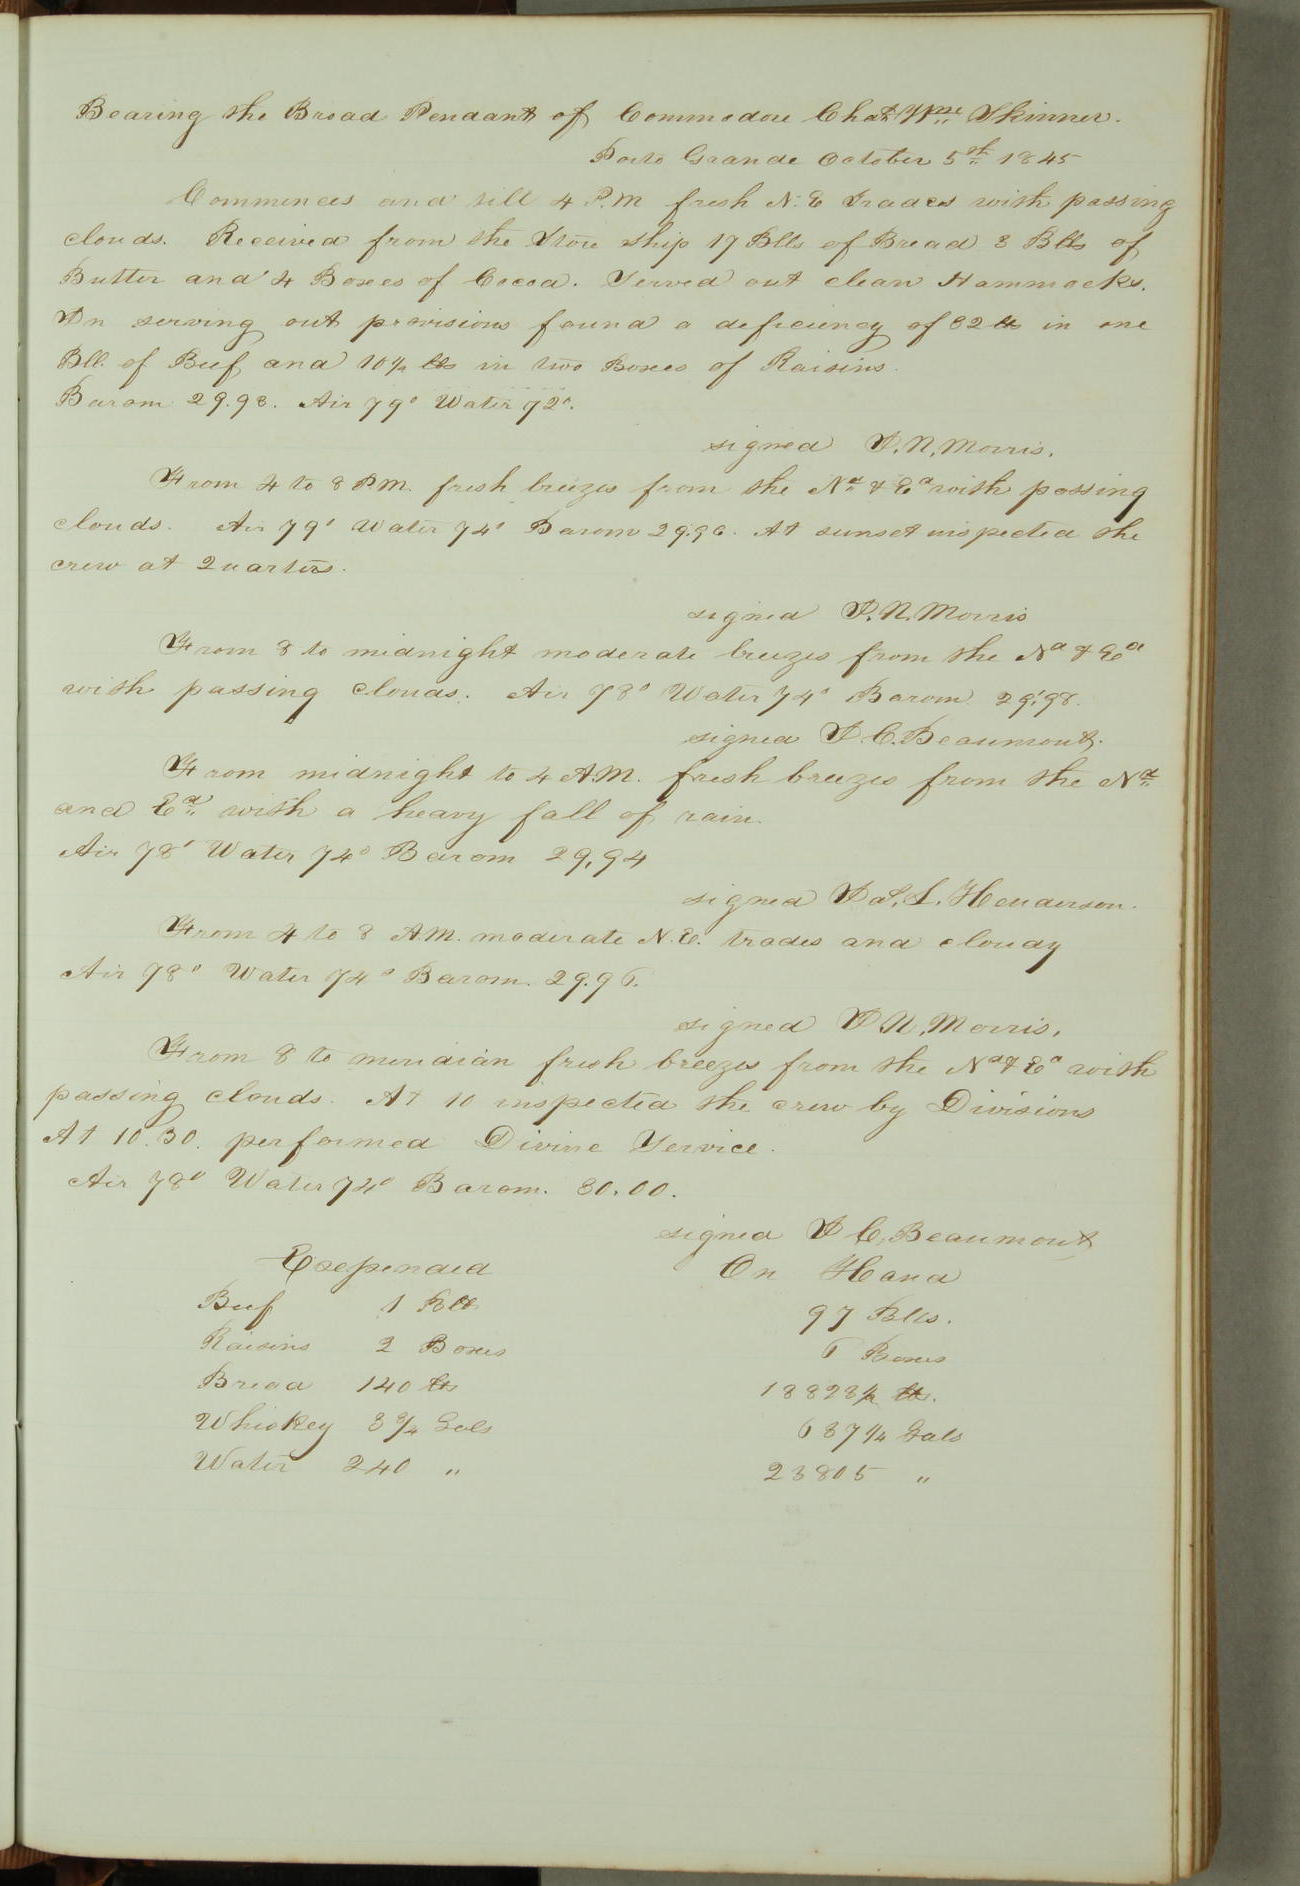 Bearing the Broad Pendant of Commodore Chas. Wm. Skinner.
Porto Grande October 5th 1845
Commences and till 4 P.M fresh N.E Trades with passing
clouds. Received from the Store ship 17 Blls of Bread 3 Blls of
Butter and 4 Boxes of Cocoa. Served out clean Hammocks.
In serving out provisions found a deficiency of 32 lbs in one
Bll. of Beef and 10½ lbs in two Boxes of Raisins.
Barom 29.98. Air 79° Water 72°.
signed I.N. Morris.
From 4 to 8 P.M. fresh breezes from the Nd & Ed with passing
clouds. Air 79° Water 74° Barom 29.96. At sunset inspected the
crew at Quarters.
signed I.N. Morris
From 8 to midnight moderate breezes from the Nd & Ed
with passing clouds. Air 78° Water 74° Barom 29.98.
signed I C. Beaumont.
From midnight to 4 A.M. fresh breezes from the Nd
and Ed with a heavy fall of rain.
Air 78° Water 74° Barom 29.94
signed Jas. L. Henderson.
From 4 to 8 A.M. moderate N.E. trades and cloudy
Air 78° Water 74° Barom. 29.96.
signed I N. Morris.
From 8 to meridian fresh breezes from the Nd & Ed with
passing clouds. At 10 inspected the crew by Divisions
At 10.30. performed Divine Service.
Air 78° Water 74° Barom. 30.00.
signed I C. Beaumont
Expended On Hand
Beef 1 Bll 97 Blls.
Raisins 2 Boxes 6 Boxes
Bread 140 lbs 18828½ lbs.
Whiskey 3¾ Gals 637¼ Gals
Water 240 " 23805 "